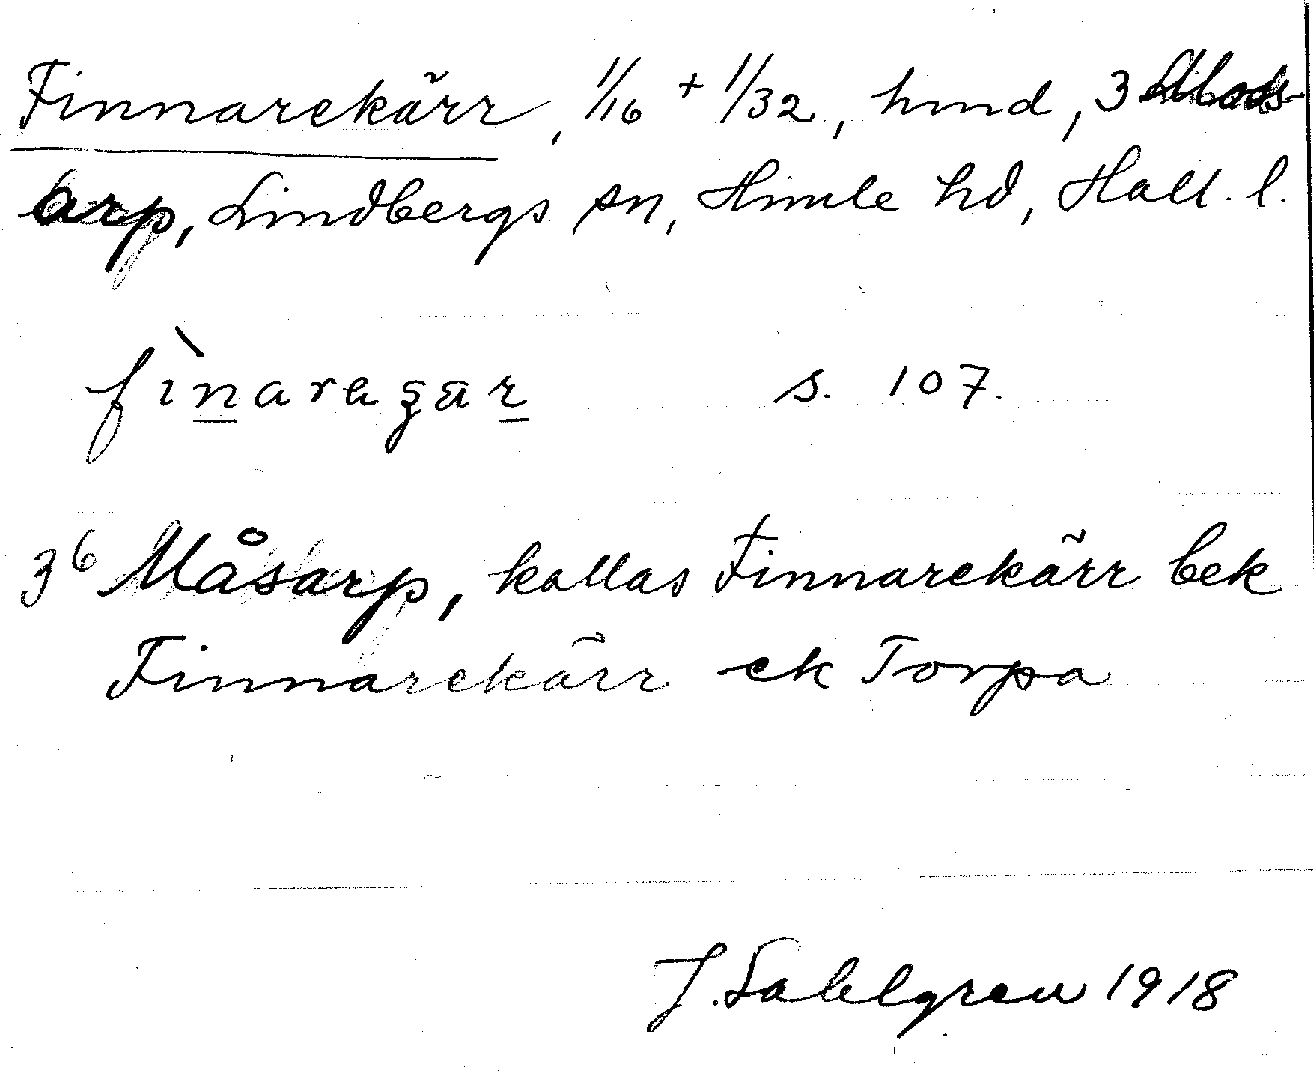 Finnarekärr, 1/16 + 1/32, hmd, 3 Mads-
arp, Lindbergs sn, Himle hd, Hall. l.
fìnaragär s. 107.
3⁶ Måsarp, kallas Finnarekärr bek
Finnarekärr ek Torpa
J. Sahlgren 1918